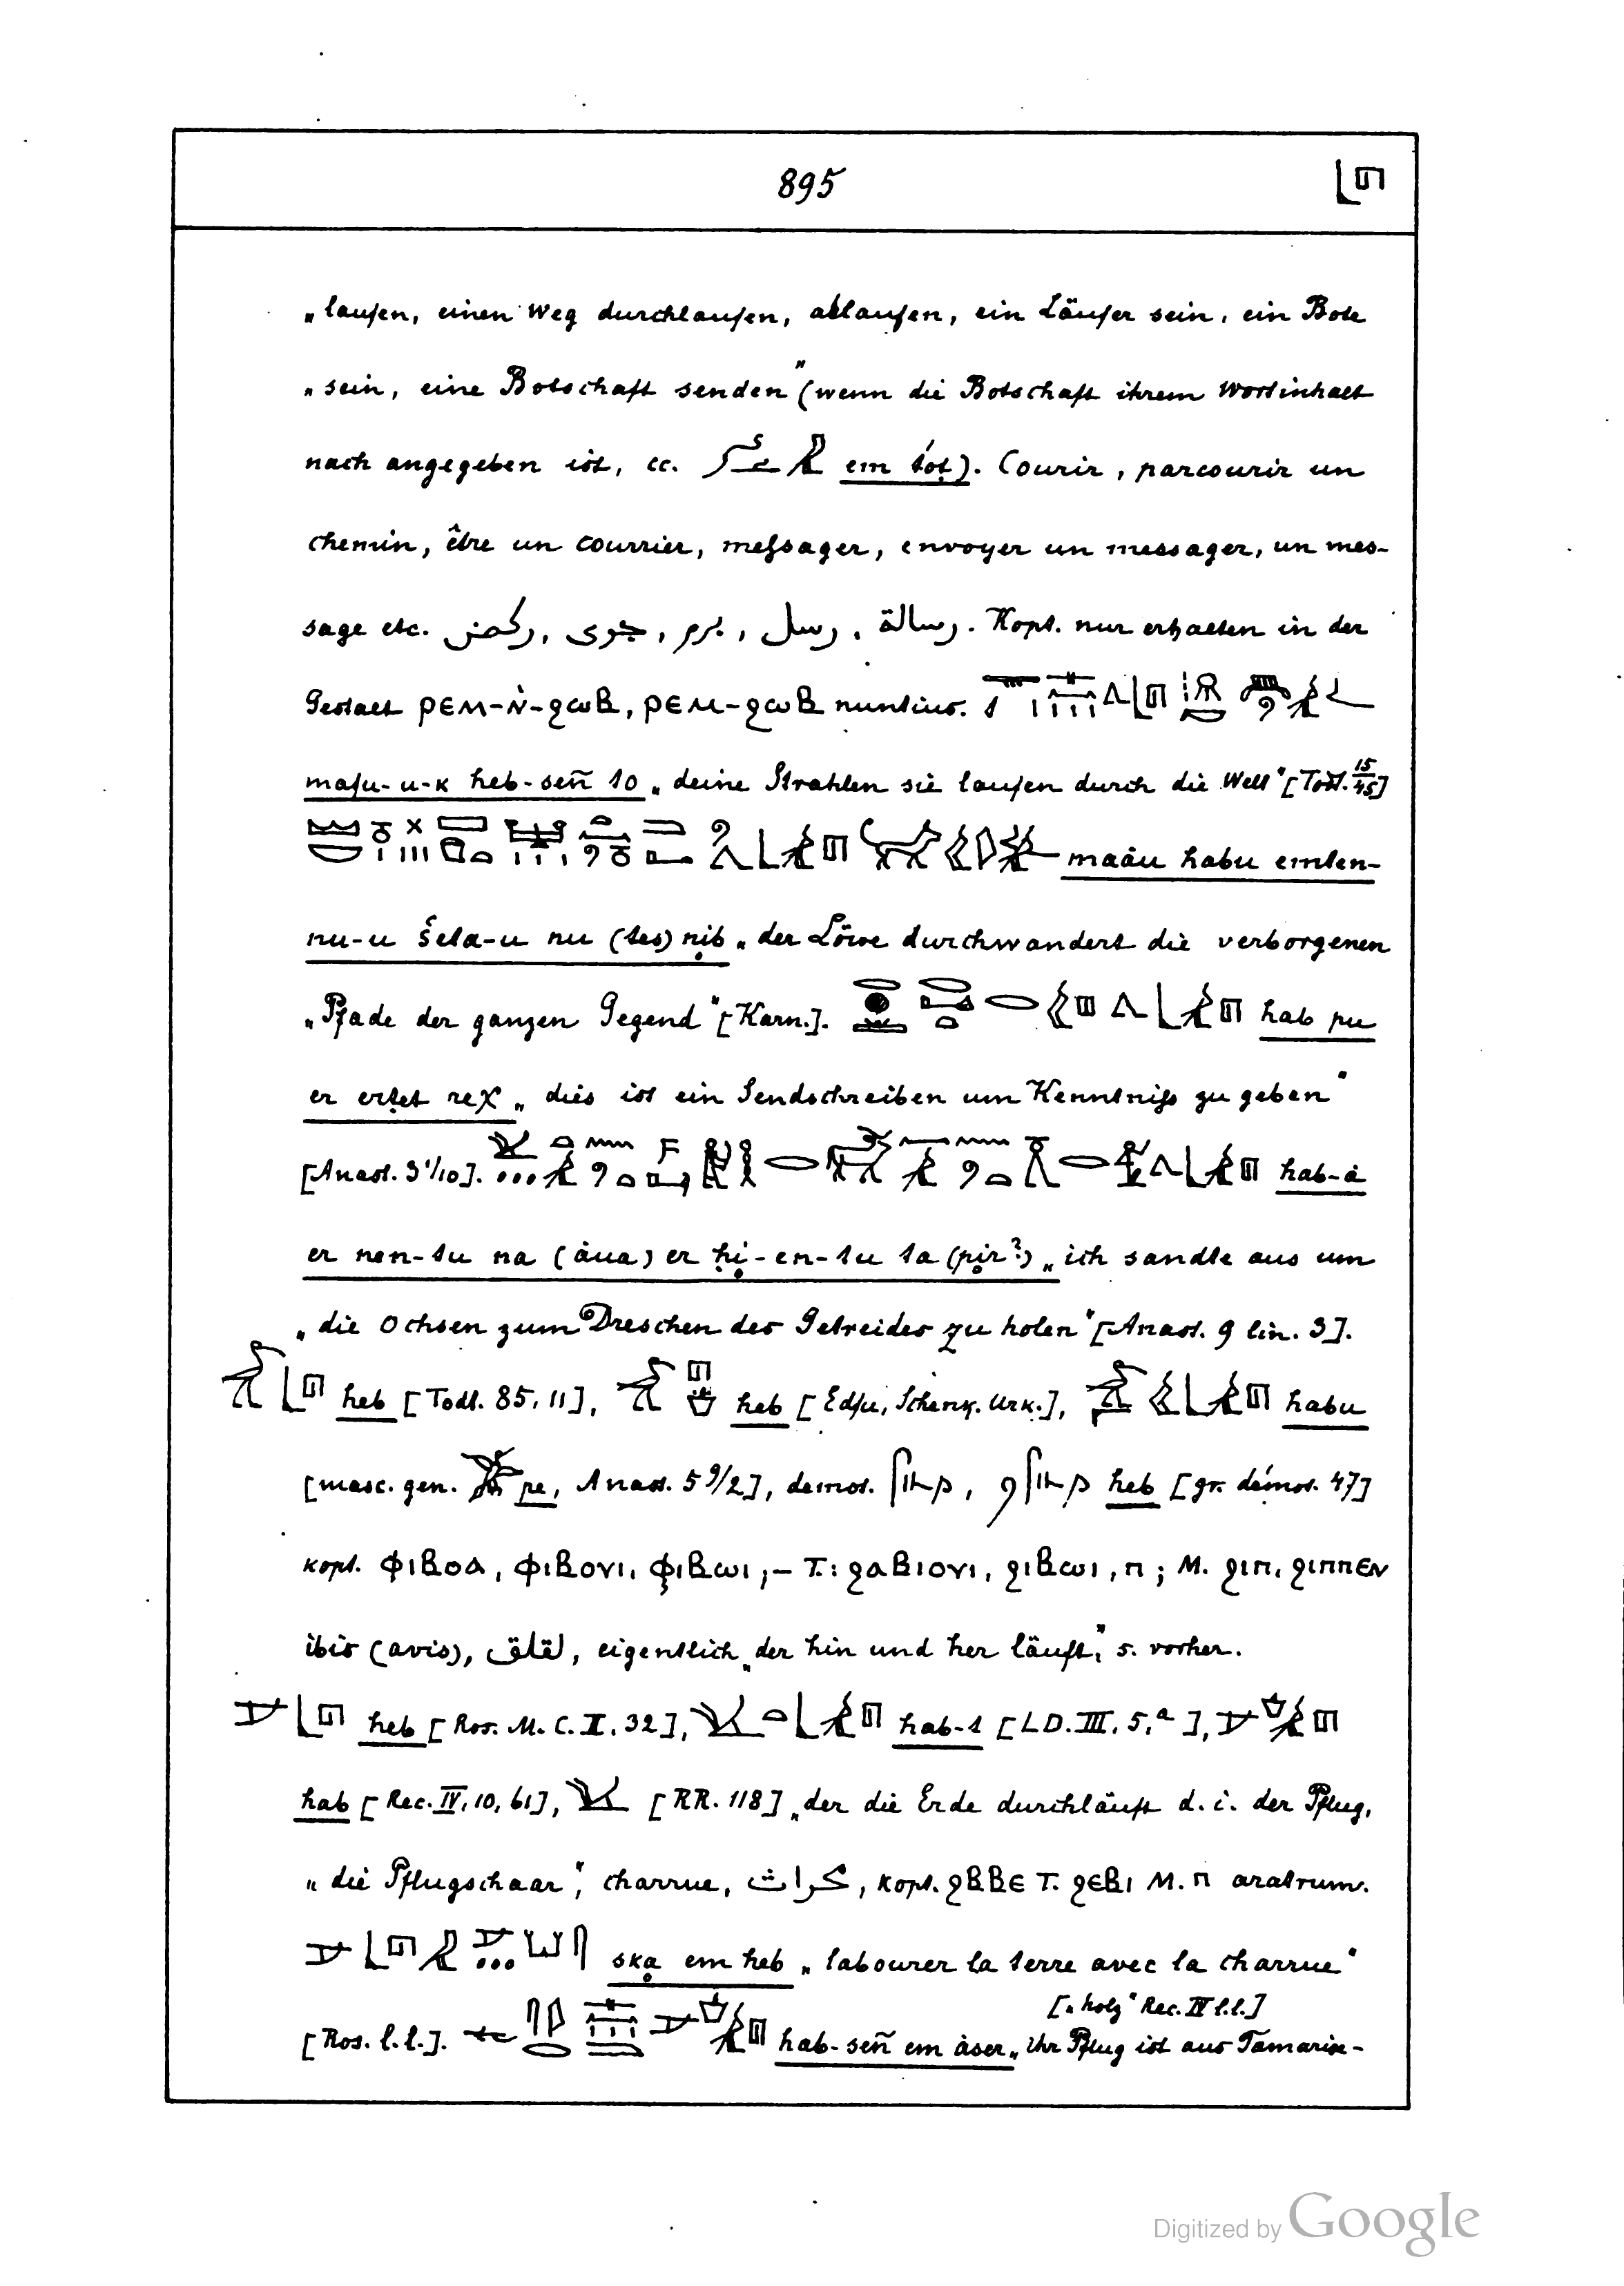 895
„laufen, einen Weg durchlaufen, ablaufen, ein Läufer sein, ein Bote
„sein, eine Botschaft senden" (wenn die Botschaft ihrem Wortinhalt
nach angegeben ist, cc. em t́ot). Courir, parcourir un
chemin, être un courrier, messager, envoyer un messager, un mes-
sage etc. ركض, جوى, برم, رسل, رسالة. Kopt. nur erhalten in der
Gestalt ⲣⲉⲙ-ⲛ̀-ϩⲱⲃ, ⲣⲉⲙ-ϩⲱⲃ nuntius.
mafu-u-k heb-señ to „deine Strahlen sie laufen durch die Welt" [Todt. 15/45]
maȧu habu emten-
nu-u šeta-u nu (tes) nib „der Löwe durchwandert die verborgenen
„Pfade der ganzen Gegend" [Karn.]. hab pu
er ertet reχ „dies ist ein Sendschreiben um Kenntniß zu geben"
[Anast. 3 1/10]. hab-ȧ
er nen-tu na (ȧua) er hi-en-tu ta (pir?) „ich sandte aus um
„die Ochsen zum Dreschen des Getreides zu holen" [Anast. 9 lin. 3].
heb [Todt. 85, 11], heb [Edfu, Schenk. Urk.], habu
[masc. gen. pe, Anast. 5 9/2], demot. heb [gr. démot. 47]
kopt. ⲫⲓⲃⲟⲁ, ⲫⲓⲃⲟⲩⲓ, ⲫⲓⲃⲱⲓ; – T.: ϩⲁⲃⲓⲟⲩⲓ, ϩⲓⲃⲱⲓ, ⲡ; M. ϩⲓⲡ, ϩⲓⲡⲡⲉⲛ
ibis (avis), لقلق, eigentlich „der hin und her läuft", s. vorher.
heb [Ros. M. C. II. 32], hab-t [LD. III. 5, a],
hab [Rec. IV, 10, 61], [RR. 118] „der die Erde durchläuft d. i. der Pflug,
„die Pflugschaar", charrue, كراث, kopt. ϩⲃⲃⲉ T. ϩⲉⲃⲓ M. ⲡ aratrum.
ska em heb „labourer la terre avec la charrue"
[„holz" Rec. IV l.l.]
[Ros. l. l.]. hab-señ em ȧser „ihr Pflug ist aus Tamarix-
Digitized by Google